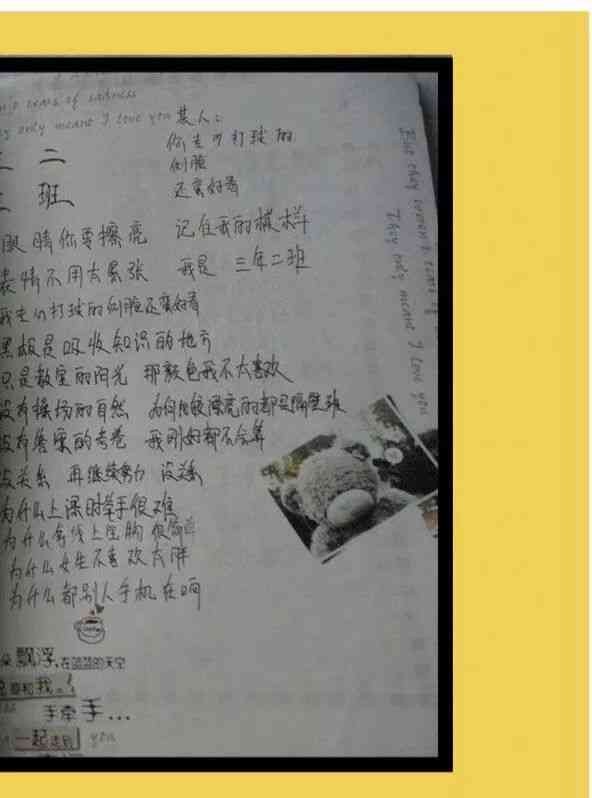 tears of sadness
only meant I love you
某人:
你去打球的
侧脸
还蛮好看
二
班
眼睛你要擦亮 记住我的模样
表情不用太紧张 我是 三年二班
我去打球的侧脸还蛮好看
黑板是吸收知识的地方
只是教室的阳光 那颜色我不太喜欢
没有操场的自然 为何比较漂亮的都是隔壁班
没有答案的考卷 我刚好都不会算
没关系 再继续努力 没关系
为什么上课时举手很难
为什么在线上 很简单
为什么女生不喜欢太胖
为什么都别人手机在响
朵飘浮在蓝蓝的天空
要和我
手牵手...
一起走到
you
But they weren't tears of
They only meant I love you